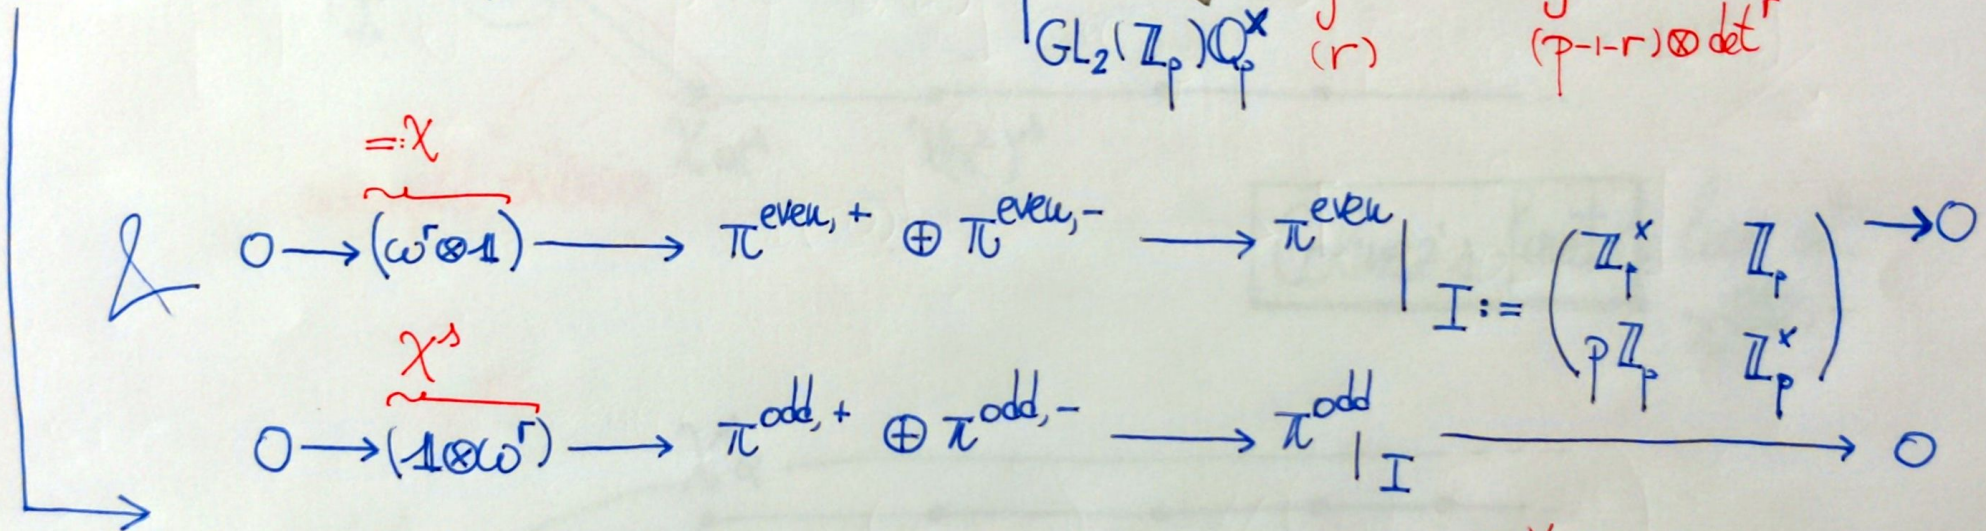 |GL₂(ℤₚ)ℚₚˣ (r) (p-1-r)⊗detʳ
=:χ
& 0 → (ωʳ⊗𝟙) → π^{even,+} ⊕ π^{even,-} → π^{even}|_{I := (ℤₚˣ ℤₚ
pℤₚ ℤₚˣ)} → 0
χˢ
0 → (𝟙⊗ωʳ) → π^{odd,+} ⊕ π^{odd,-} → π^{odd}|_I → 0